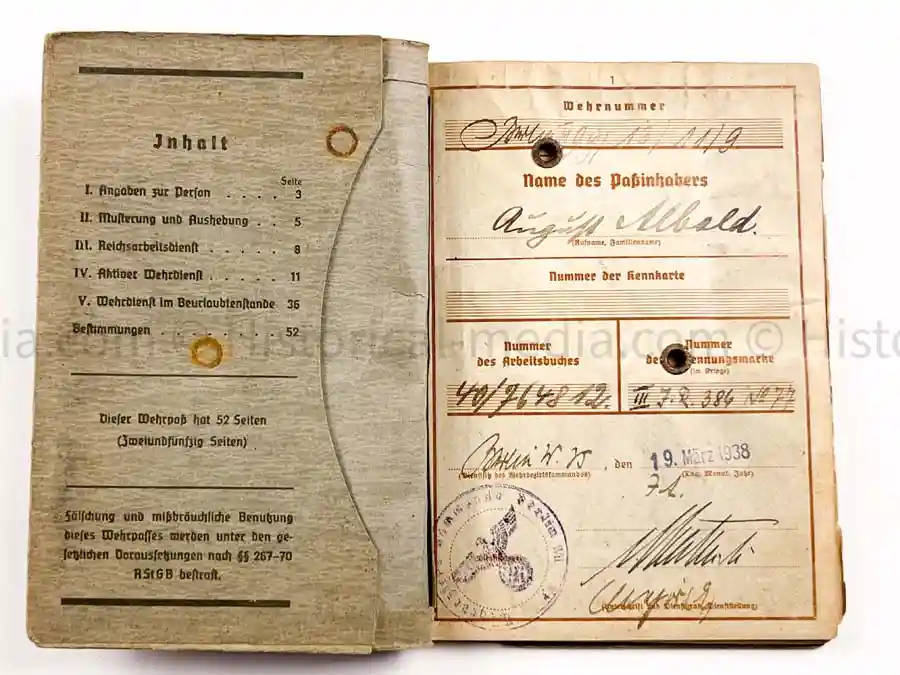 Inhalt
Seite
I. Angaben zur Person . . . . 3
II. Musterung und Aushebung . . 5
III. Reichsarbeitsdienst . . . . . 8
IV. Aktiver Wehrdienst . . . . . 11
V. Wehrdienst im Beurlaubtenstande 36
Bestimmungen . . . . . . . . 52
Dieser Wehrpaß hat 52 Seiten
(Zweiundfünfzig Seiten)
Fälschung und mißbräuchliche Benutzung
dieses Wehrpasses werden unter den ge-
setzlichen Voraussetzungen nach §§ 267-70
RStGB bestraft.
1
Wehrnummer
Berlin
Name des Paßinhabers
August Albold.
(Rufname, Familienname)
Nummer der Kennkarte
Nummer
des Arbeitsbuches
Nummer
(im Kriege)
40/7648 12.
III J.R. 386 No 77
Berlin W., den 19. März 1938
(Dienstsitz des Wehrbezirkskommandos)
(Tag, Monat, Jahr)
(Unterschrift und Dienstgrad, Dienststellung)
Berlin VII
media.com © Historical-media.com © Histo